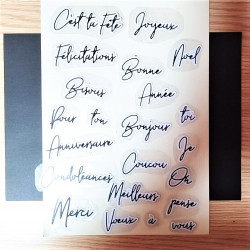 C'est ta Fête Joyeux
Félicitations Noël
Bonne
Bisous Année
Pour ton Bonjour toi
Anniversaire Je
Coucou
Condoléances On
Meilleurs pense
Merci Voeux à vous